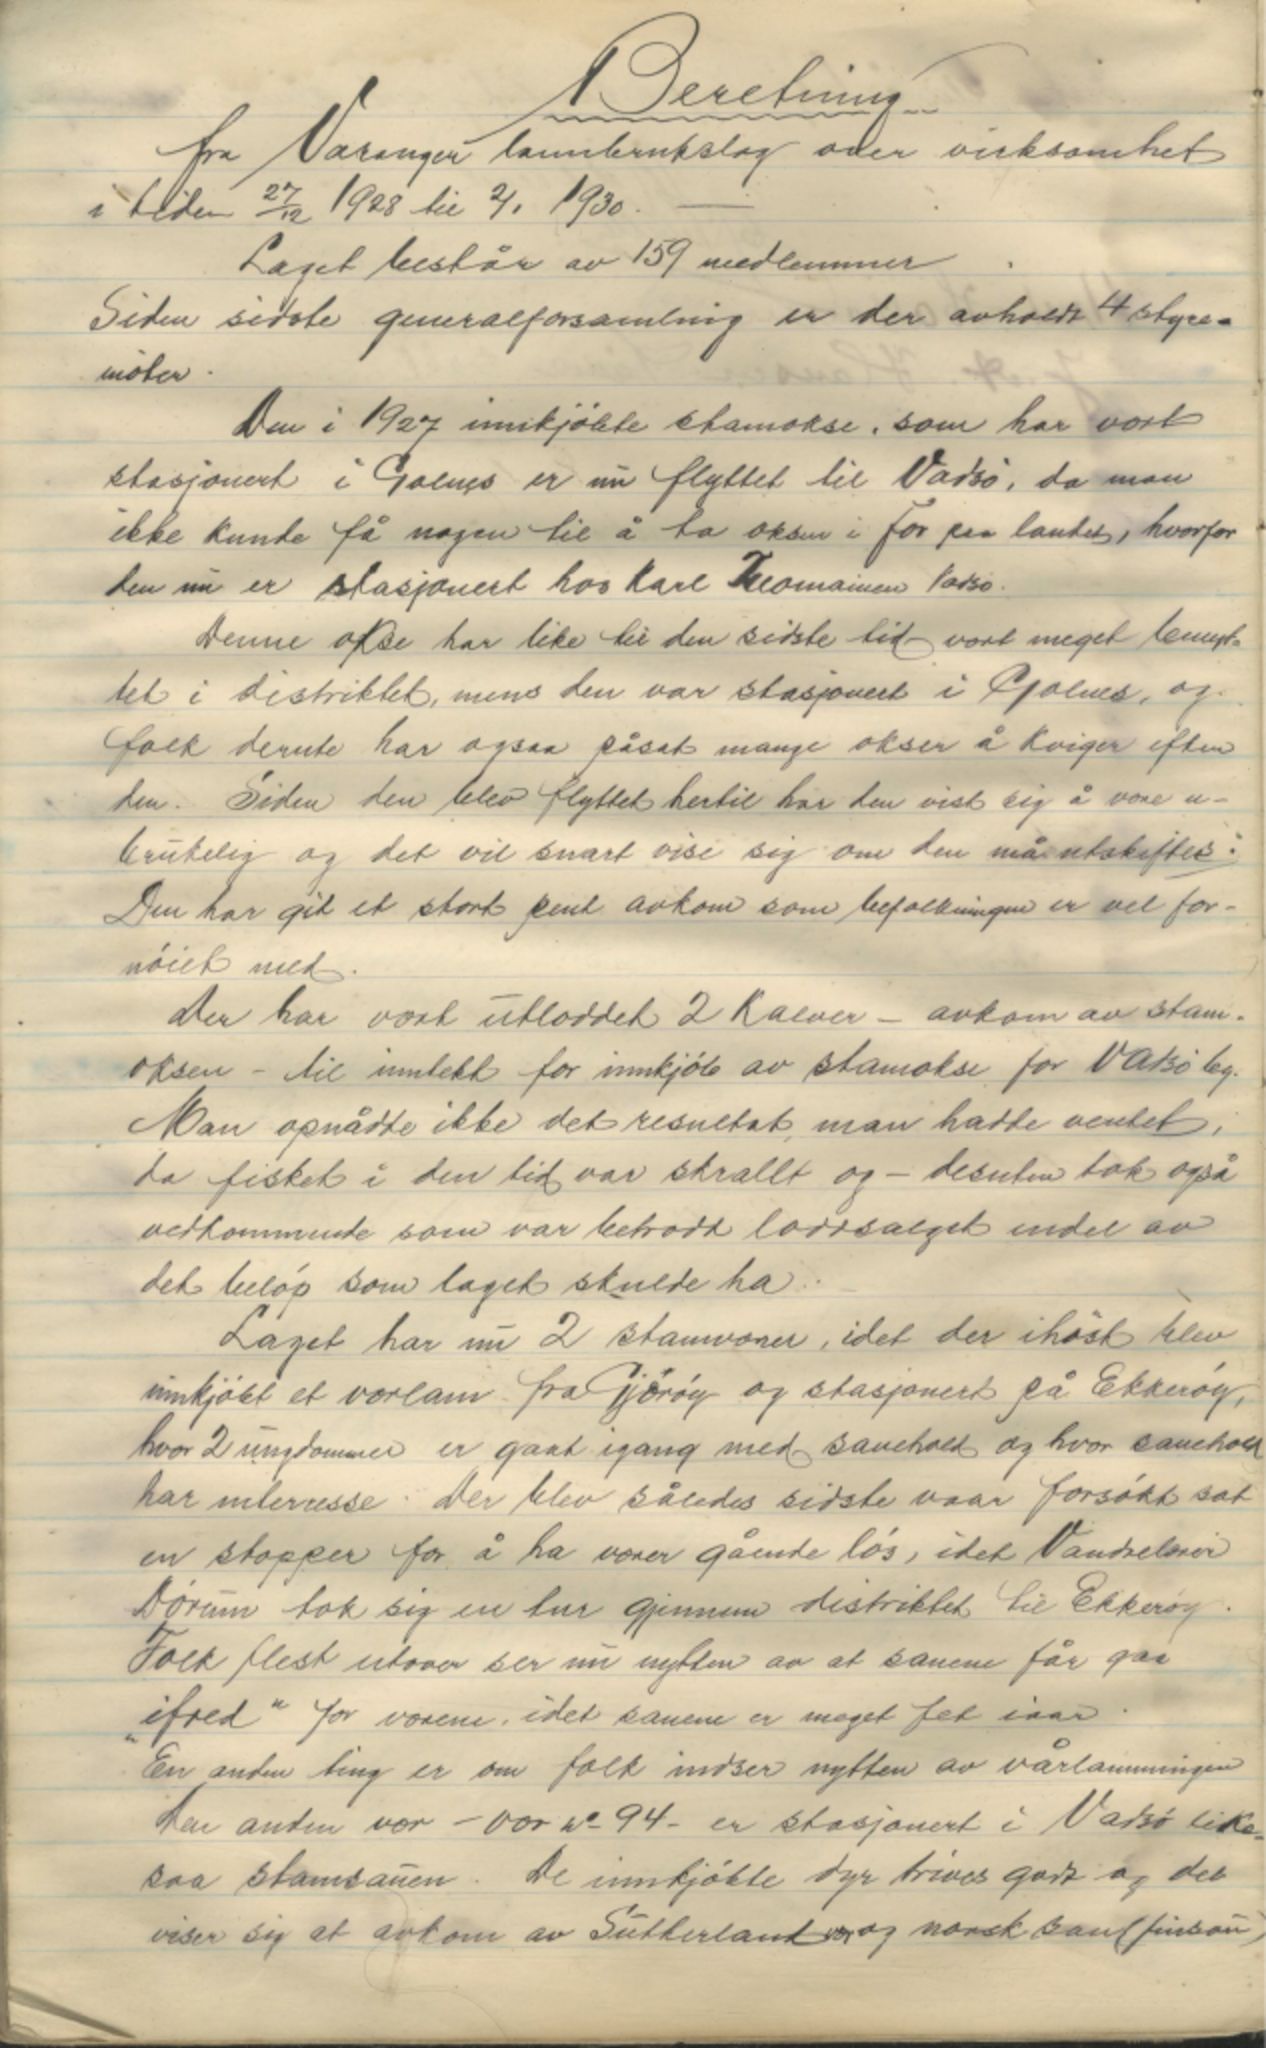 Beretning
fra Varanger lannbrukslag over virksomhet
i tiden 27/12 1928 til 2/1 1930.
Laget består av 159 medlemmer
Siden sidste generalforsamling er der avholdt 4 styre-
möter.
Den i 1927 innkjöbte stamokse, som har vært
stasjonert i Golnes er nu flyttet til Vadsö, da man
ikke kunde få nogen til å ta oksen i for paa landet, hvorfor
den nu er stasjonert hos Karl Vadsö.
Denne okse har like til den sidste tid vært meget benyt-
tet i distriktet, mens den var stasjonert i Golnes, og
folk derute har ogsaa påsat mange okser å kviger efter
den. Siden den blev flyttet hertil har den vist sig å være u-
brukelig og det vil snart vise sig om den må utskiftes.
Den har git et stort pent avkom som befolkningen er vel for-
nöiet med.
Der har vært utloddet 2 Kalver - avkom av stam-
oksen - til inntekt for innkjöb av stamokse for Vadsö by.
Man opnådte ikke det resultat man hadde ventet,
da fisket i den tid var skrallt og - desuten tok også
vedkommende som var betrodt loddsalget endel av
det belöp som laget skulde ha.
Laget har nu 2 stamværer, idet der ihöst blev
innkjöbt et værlam fra Gjöröy og stasjonert på Ekkeröy,
hvor 2 ungdommer er gaat igang med sauehold og hvor sauehold
har interresse. Der blev således sidste vaar forsökt sat
en stopper for å ha værer gående lös, idet Vandrelærer
Dörum tok sig en tur gjennem distriktet til Ekkeröy.
Folk flest utover ser nu nytten av at sauene får gaa
"ifred" for værene, idet sauene er meget fet iaar.
En anden ting er om folk indser nytten av vårlammingen
Den anden vær - vær no 94 - er stasjonert i Vadsö like-
saa stamsauen. De innkjöbte dyr trives godt og det
viser sig at avkom av Sutherland vær og norsk sau (finsau)